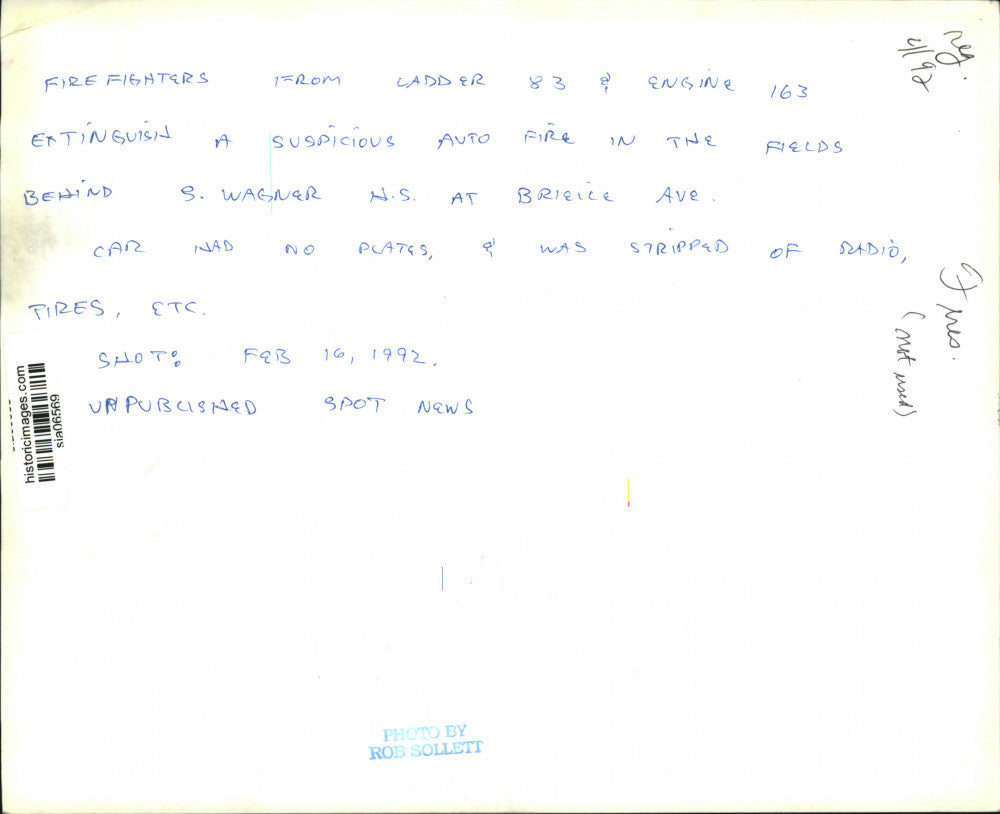 FIREFIGHTERS FROM LADDER 83 & ENGINE 163
EXTINGUISH A SUSPICIOUS AUTO FIRE IN THE FIELDS
BEHIND S. WAGNER H.S. AT BRIELLE AVE.
CAR HAD NO PLATES, & WAS STRIPPED OF RADIO,
TIRES, ETC.
SHOT: FEB 16, 1992.
UNPUBLISHED SPOT NEWS
reg.
4/92
Fires.
(not used)
historicimages.com
sia06569
PHOTO BY
ROB SOLLETT